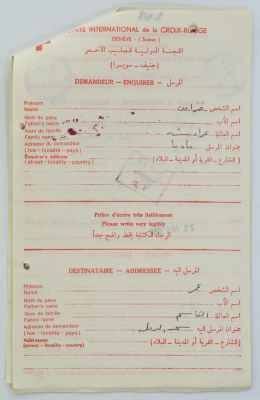 COMITÉ INTERNATIONAL de la CROIX-ROUGE
GENÈVE - (Suisse)
اللجنة الدولية للصليب الاحمر
(جنيف - سويسرا)
DEMANDEUR — ENQUIRER — المرسل
Prénom
Name اسم الشخص
Nom du père
Father's name اسم الأب
Nom de famille
Family name اسم العائلة
Adresse du demandeur
(rue - localité - pays) عنوان المرسل مادبا
Enquirer's address
(street - locality - country) (الشارع - القرية أو المدينة - البلاد)
Prière d'écrire très lisiblement
Please write very legibly
الرجاء الكتابة بخط واضح جداً
DESTINATAIRE — ADDRESSEE — المرسل اليه
Prénom
Name اسم الشخص عمر
Nom du père
Father's name اسم الأب
Nom de famille
Family name اسم العائلة القاسم
Adresse du demandeur
(rue - localité - pays) عنوان المرسل اليه
Addresse
(street - locality - country) (الشارع - القرية أو المدينة - البلاد)